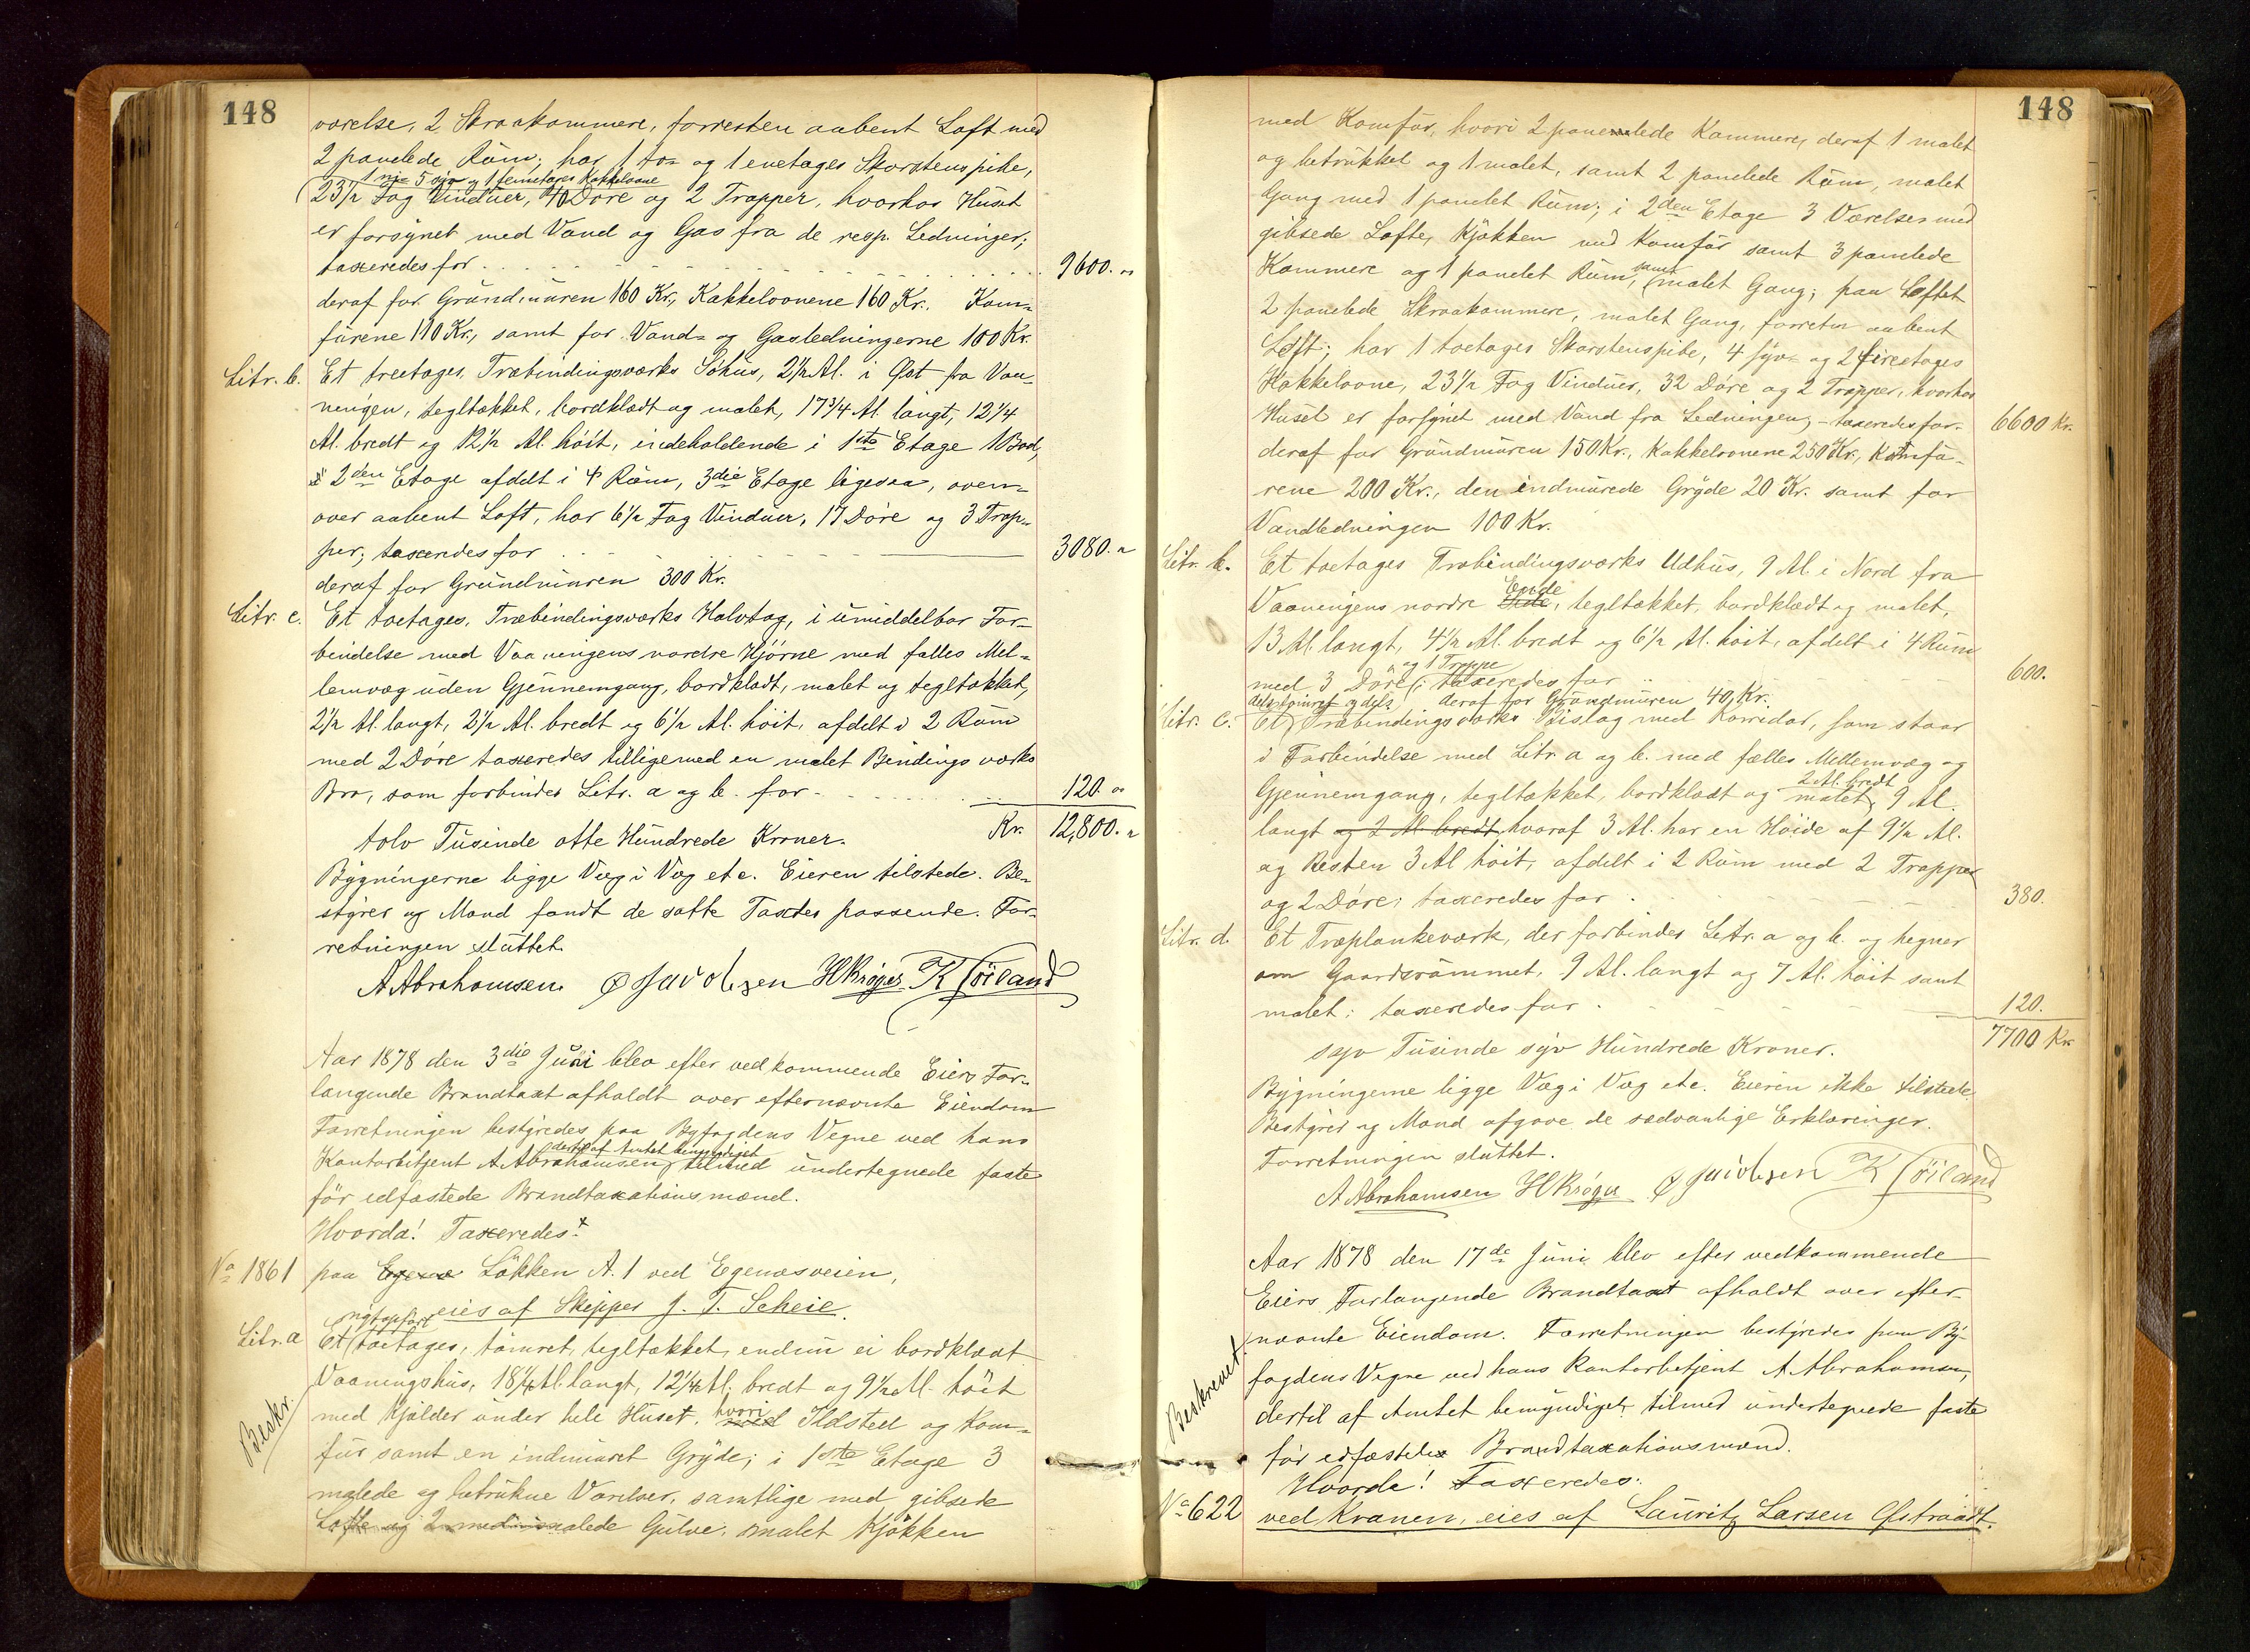 148
værelse, 2 Skraakammere, forresten aabent Loft med
2 panelede Rum; har 1 to- og 1 enetages Skorstenspibe,
1 ni- 5 syv- og 1 femetages Kakkelovne
23½ Fag Vinduer, 40 Döre og 2 Trapper, hvorhos Huset
er forsynet med Vand og Gas fra de resp. Ledninger;
taxeredes for 9600. "
deraf for Grundmuren 160 Kr., Kakkelovnene 160 Kr., Kom-
fürene 110 Kr., samt for Vand- og Gasledningerne 100 Kr.
Litr. b. Et treetages, Træbindingsværks Söhus, 2½ Al. i Øst fra Vaa-
ningen, tegltækket, bordklædt og malet, 17¾ Al. langt, 12¼
Al. bredt og 12½ Al. höit, indeholdende i 1ste Etage 1 Bod,
2den Etage afdelt i 4 Rum, 3die Etage ligesaa, oven-
over aabent Loft, har 6½ Fag Vinduer, 17 Döre og 3 Trap-
per; taxeredes for 3080. "
deraf for Grundmuren 300 Kr.
Litr. c. Et toetages, Træbindingsværks Halvtag, i umiddelbar For-
bindelse med Vaaningens nordre Hjörne med fælles Mel-
lemvæg uden Gjennemgang, bordklædt, malet og tegltækket,
2½ Al. langt, 2½ Al. bredt og 6½ Al. höit, afdelt i 2 Rum
med 2 Döre taxeredes tilligemed en malet Bindingsværks
Bro, som forbinder Litr. a og b. for 120. "
tolv Tusinde otte Hundrede Kroner. Kr. 12,800. "
Bygningerne ligge Væg i Væg etc. Eieren tilstede. Be-
styrer og Mænd fandt de satte Taxter passende. For-
retningen sluttet.
A Abrahamsen. O Jacobsen H Kröger K Töiland
Aar 1878 den 3die Juni blev efter vedkommende Eiers For-
langende Brandtaxt afholdt over efternævnte Eiendom
Forretningen bestyredes paa Byfogdens Vegne ved hans
dertil af Amtet bemyndiget
Kontorbetjent A Abrahamsen, tilmed undertegnede faste
för edfæstede Brandtaxationsmænd.
Hvorda! Taxeredes:
No 1861 paa Egenæ Lökken A. 1 ved Egenæsveien,
eies af Skipper J. T. Scheie.
nytopfört
Litr. a Et toetages, tömret, tegltækket, endnu ei bordklædt
Vaaningshus, 18¼ Al. langt, 12¼ Al. bredt og 9½ Al. höit
Beskr.
med Kjælder under hele Huset, hvori med Ildsted og Kom-
für samt en indmuret Gryde; i 1ste Etage 3
malede og betrukne Værelser, samtlige med gibsede
Lofte og 2 med malede Gulve, malet Kjökken
148
med Komfür, hvori 2 panelede Kammere, deraf 1 malet
og betrukket og 1 malet, samt 2 panelede Rum, malet
Gang med 1 panelet Rum; i 2den Etage 3 Værelser med
gibsede Lofte, Kjökken med Komfür samt 3 panelede
Kammere og 1 panelet Rum, samt malet Gang; paa Loftet
2 panelede Skraakammere, malet Gang, forresten aabent
Loft; har 1 toetages Skorstenspibe, 4 syv- og 2 fireetages
Kakkelovne, 23½ Fag Vinduer, 32 Döre og 2 Trapper, hvorhos
Huset er forsynet med Vand fra Ledningen, - taxeredes for 6600 Kr.
deraf for Grundmuren 150 Kr., Kakkelovnene 250 Kr., Komfü-
rene 200 Kr., den indmurede Gryde 20 Kr. samt for
Vandledningen 100 Kr.
Litr. b. Et toetages Træbindingsværks Udhus, 9 Al. i Nord fra
Vaaningens nordre Side Ende, tegltækket, bordklædt og malet,
13 Al. langt, 4½ Al. bredt og 6½ Al. höit, afdelt i 4 Rum
og 1 Trappe
med 3 Döre; taxeredes for 600.
deraf for Grundmuren 40 Kr.
dels tömret og dels
Litr. c. Et Træbindingsværks Bislag med Korridor, som staar
i Forbindelse med Litr. a og b. med fælles Mellemvæg og
2 Al. bredt
Gjennemgang, tegltækket, bordklædt og malet, 9 Al.
langt og 2 Al. bredt hvoraf 3 Al. har en Höide af 9½ Al.
og Resten 3 Al höit, afdelt i 2 Rum med 2 Trapper
og 2 Döre; taxeredes for 380.
Litr. d. Et Træplankeværk, der forbinder Litr. a og b. og hegner
om Gaardsrummet, 9 Al. langt og 7 Al. höit samt
malet; taxeredes for 120.
7700 Kr.
syv Tusinde syv Hundrede Kroner.
Bygningerne ligge Væg i Væg etc. Eieren ikke tilstede
Bestyrer og Mænd afgave de sædvanlige Erklæringer.
Forretningen sluttet.
A Abrahamsen H Kröger O Jacobsen K Töiland
Aar 1878 den 17de Juni blev efter vedkommende
Eiers Forlangende Brandtaxt afholdt over efter-
nævnte Eiendom. Forretningen bestyredes paa By-
Beskrevet
fogdens Vegne ved hans Kontorbetjent A Abrahamsen,
dertil af Amtet bemyndiget, tilmed undertegnede faste
för edfæstede Brandtaxationsmænd.
Hvorda! Taxeredes:
No 622 ved Kranen, eies af Lauritz Larsen Østraadt.